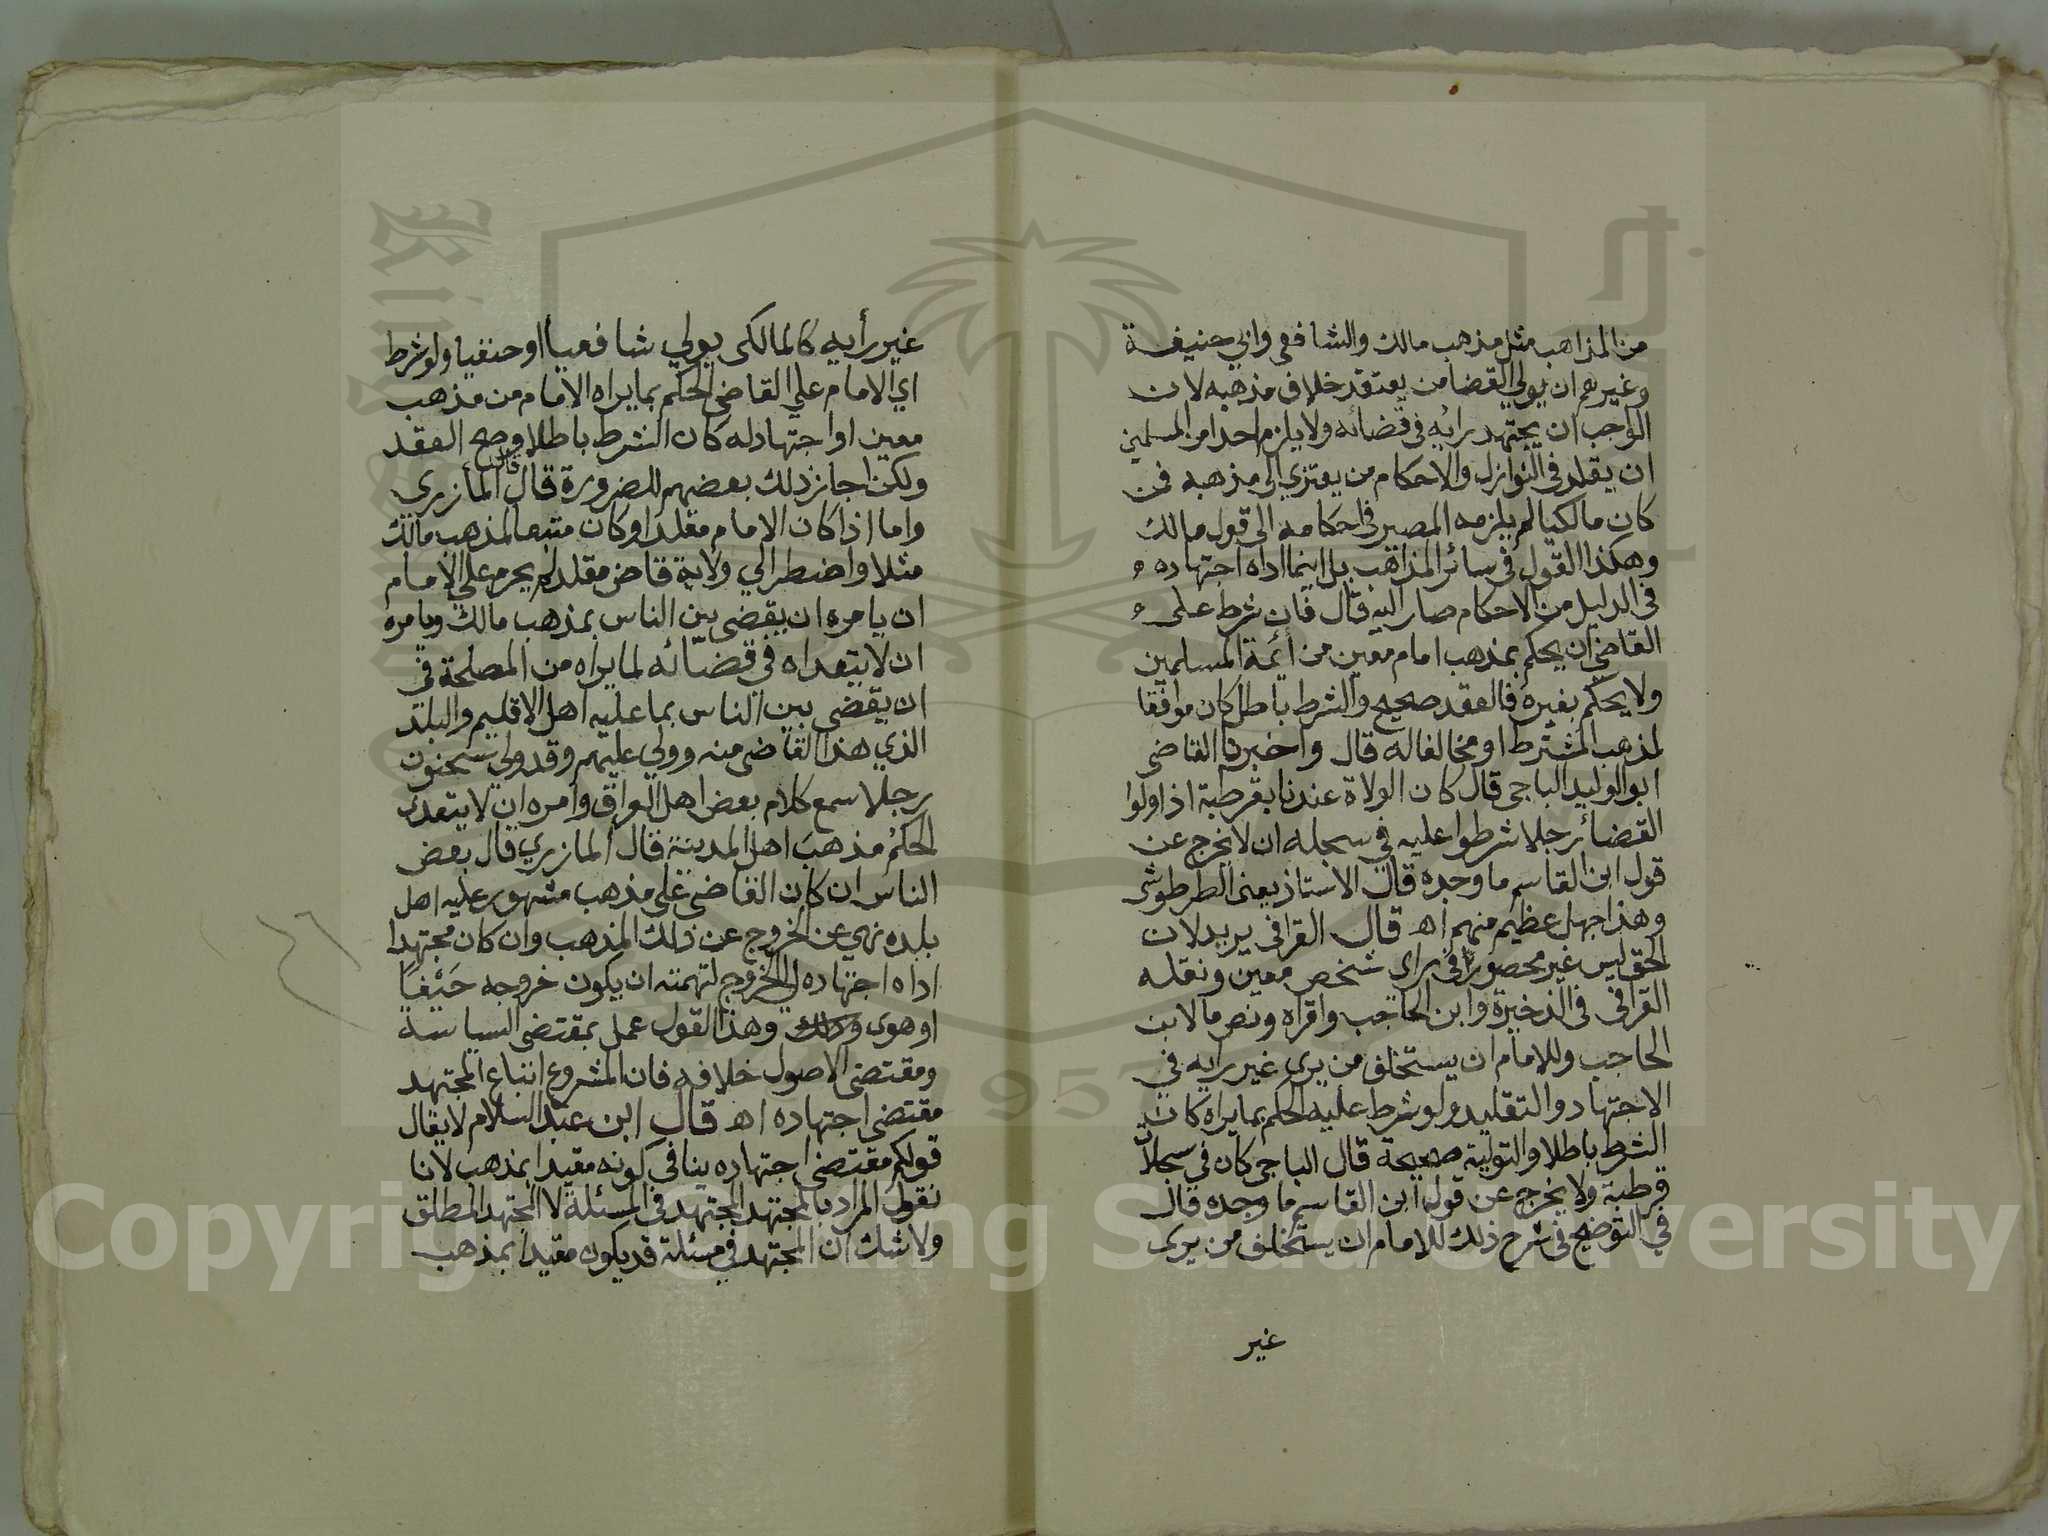 من المذاهب مثل مذهب مالك والشافعي وابي حنيفة
وغيرهم ان يولي القضا من يعتقد خلاف مذهبه لان
الواجب ان يجتهد برائه في قضائه ولا يلزم احدا من المسلمين
ان يقلد في النوازل والاحكام من يعتزي الى مذهبه فمن
كان مالكيا لم يلزمه المصير في احكامه الى قول مالك
وهكذا القول في سائر المذاهب بل اينما اداه اجتهاده
في الدليل من الاحكام صار اليه قال فان شرط على
القاضي ان يحكم بمذهب امام معين من أئمة المسلمين
ولا يحكم بغيره فالعقد صحيح والشرط باطل كان موافقا
لمذهب المشترط او مخالفا له قال واخبرنا القاضي
ابو الوليد الباجي قال كان الولاة عندنا بقرطبة اذا ولوا
القضا رجلا شرطوا عليه في سجله ان لا يخرج عن
قول ابن القاسم ما وجده قال الاستاذ يعني الطرطوشي
وهذا جهل عظيم منهم اه قال القرافي يريد لان
الحق ليس غير محصورا في راي شخص معين ونقله
القرافي في الذخيرة وابن الحاجب واقراه ونص ما لابن
الحاجب وللامام ان يستخلف من يرى غير رايه في
الاجتهاد والتقليد ولو شرط عليه الحكم بما يراه كان
الشرط باطلا والتولية صحيحة قال الباجي كان في سجلات
قرطبة ولا يخرج عن قول ابن القاسم ما وجده قال
في التوضيح في شرح ذلك للامام ان يستخلف من يرى
غير
غير رأيه كالمالكي يولي شافعيا او حنفيا ولو شرط
اي الامام علي القاضي الحكم بما يراه الامام من مذهب
معين او اجتهاد له كان الشرط باطلا وصح العقد
ولكن اجاز ذلك بعضهم للضرورة قال المازري
واما اذا كان الامام مقلدا وكان متبعا لمذهب مالك
مثلا واضطر الي ولاية قاض مقلد لم يحرم علي الامام
ان يامره ان يقضي بين الناس بمذهب مالك ويامره
ان لا يتعداه في قضائه لما يراه من المصلحة في
ان يقضي بين الناس بما عليه اهل الاقليم والبلد
الذي هذا القاضي منه وولي عليهم وقد ولي سحنون
رجلا سمع كلام بعض اهل العراق وامره ان لا يتعدى
الحكم مذهب اهل المدينة قال المازري قال بعض
الناس ان كان القاضي علي مذهب مشهور عليه اهل
بلده نهي عن الخروج عن ذلك المذهب وان كان مجتهدا
اداه اجتهاده الي الخروج لتهمته ان يكون خروجه حيفا
او هوى وهذا القول عمل بمقتضى السياسة
ومقتضى الاصول خلافه فان المشروع اتباع المجتهد
مقتضى اجتهاده اه قال ابن عبد السلام لا يقال
قولكم مقتضى اجتهاده ينافي كونه مقيدا بمذهب لانا
نقول المراد بالمجتهد المجتهد في المسئلة لا المجتهد المطلق
ولا شك ان المجتهد في مسئلة قد يكون مقيدا بمذهب
Copyright © King Saud University
1957